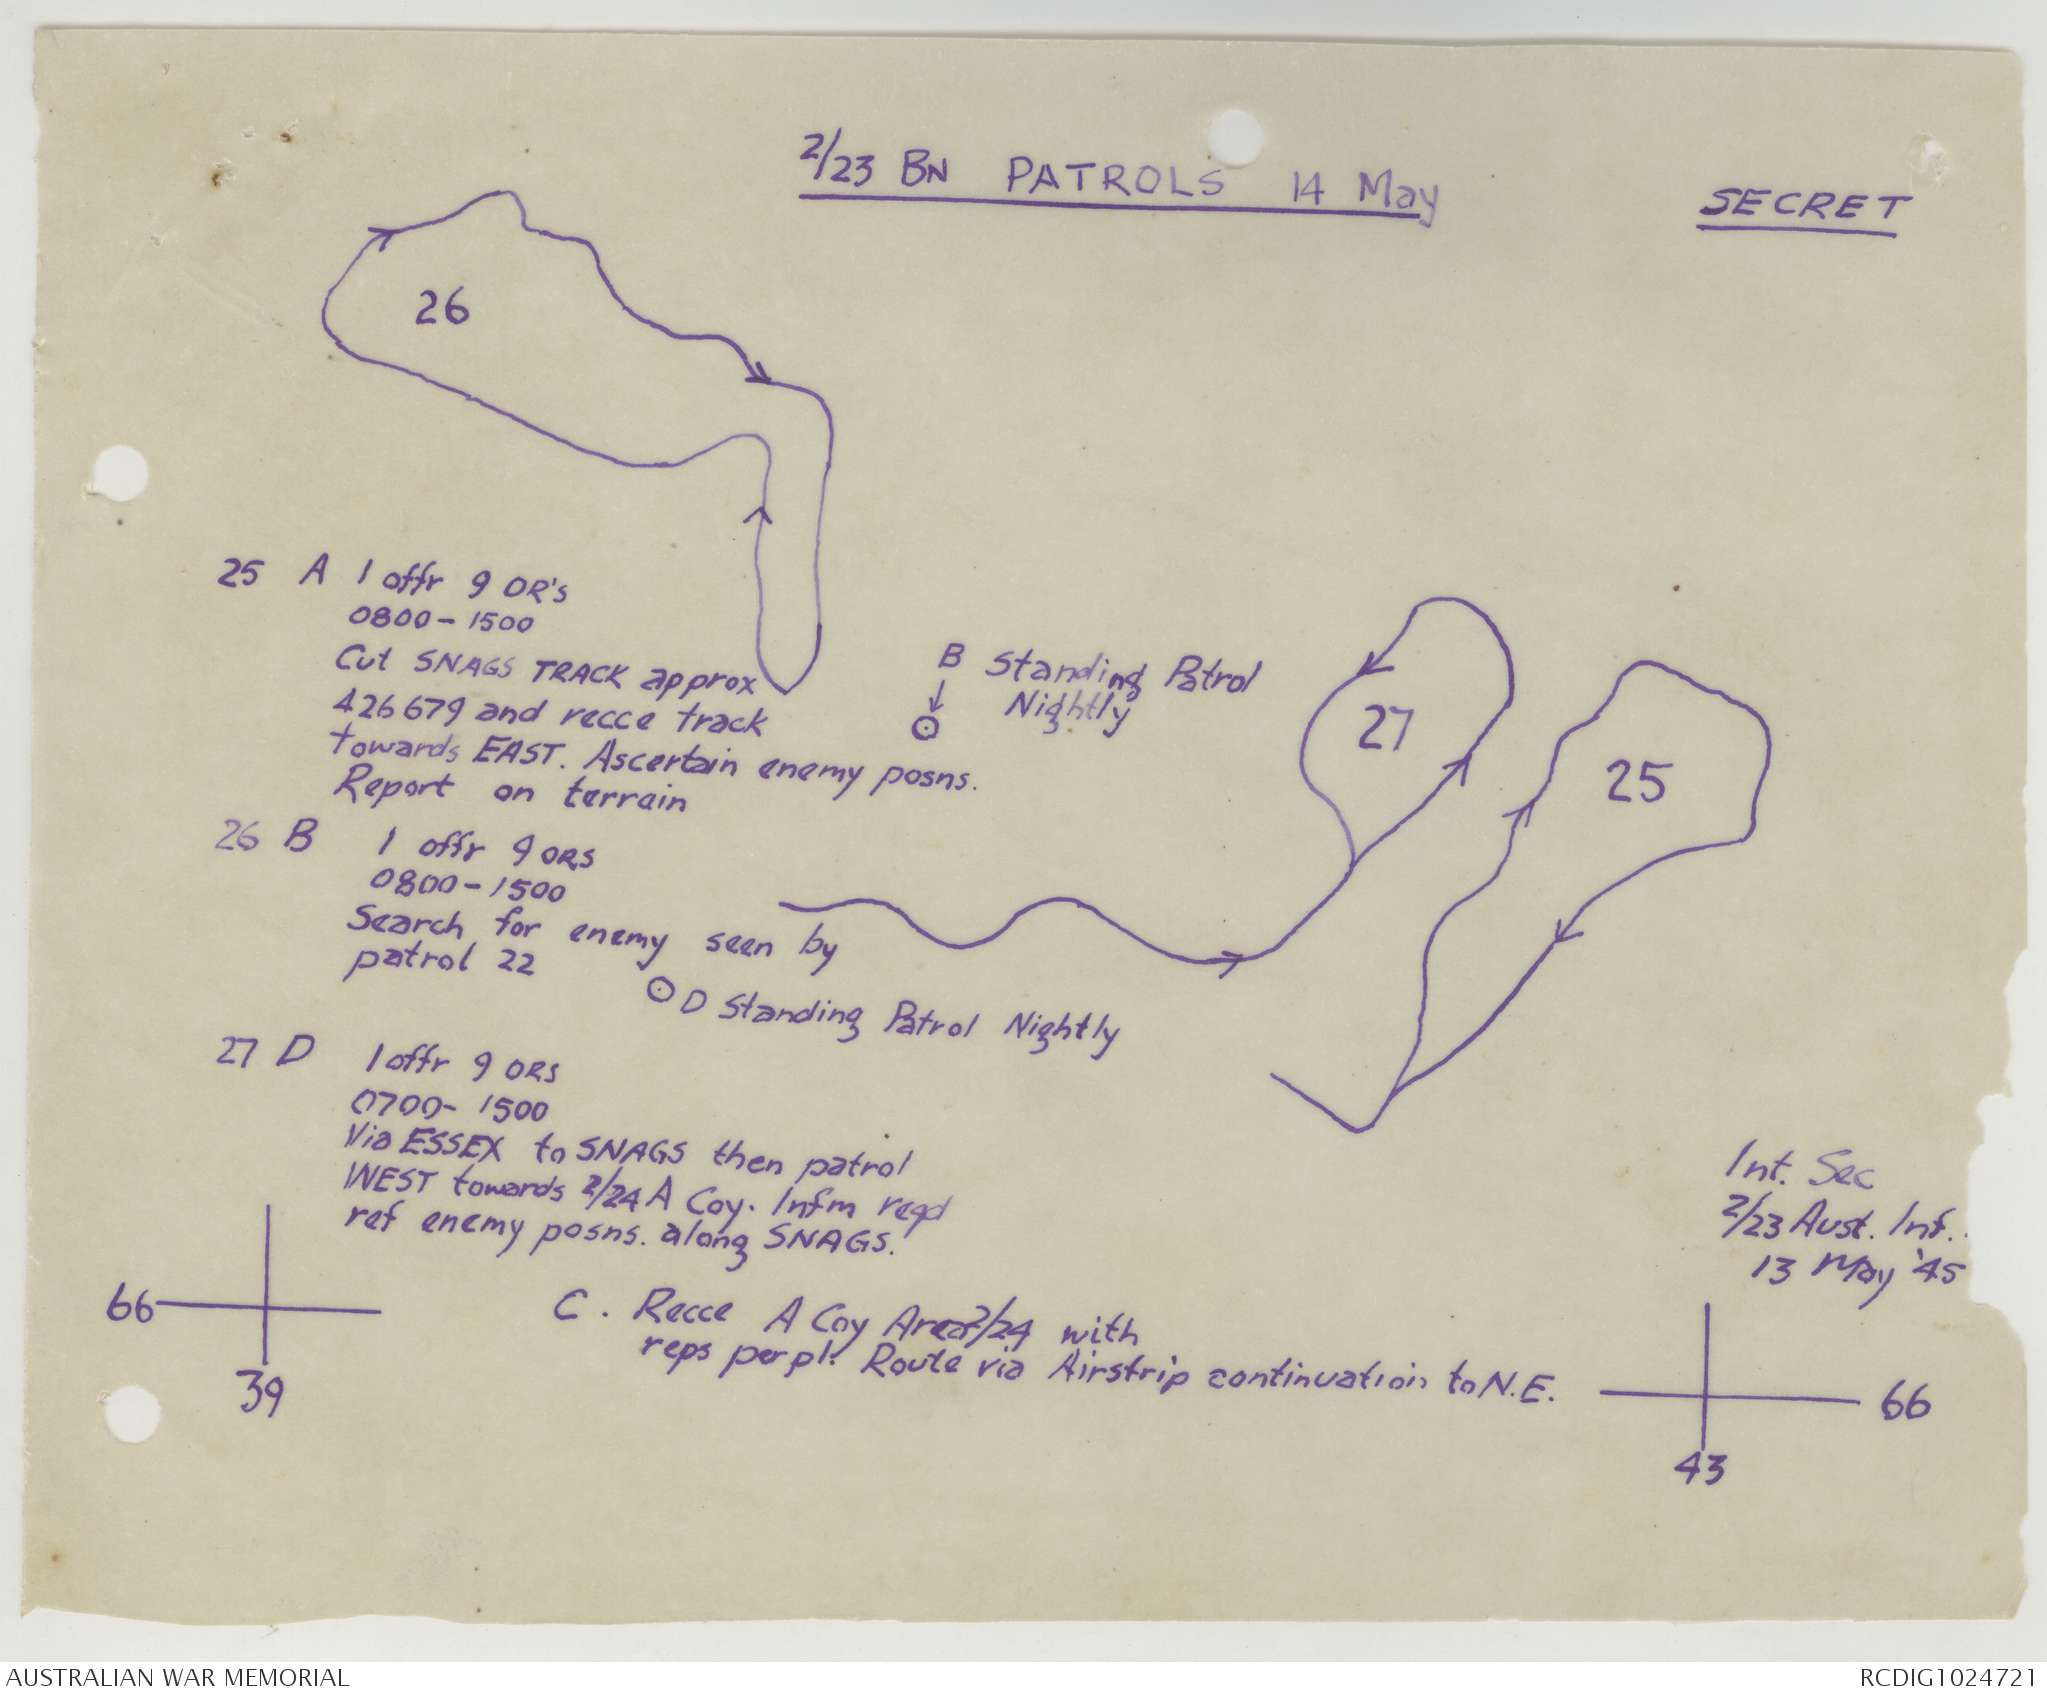 2/23 BN PATROLS 14 May
SECRET
26
25 A 1 offr 9 OR's
0800-1500
Cut SNAGS TRACK approx
426679 and recce track
towards EAST. Ascertain enemy posns.
Report on terrain
B Standing Patrol
Nightly
27
25
26 B 1 offr 9 ORS
0800-1500
Search for enemy seen by
patrol 22
D Standing Patrol Nightly
27 D 1 offr 9 ORS
0700-1500
Via ESSEX to SNAGS then patrol
WEST towards 2/24 A Coy. Infm reqd
ref enemy posns. along SNAGS.
Int. Sec
2/23 Aust. Inf..
13 May '45
66
39
C. Recce A Coy Area 2/24 with
reps per pl. Route via Airstrip continuation to N.E.
66
43
AUSTRALIAN WAR MEMORIAL
RCDIG1024721